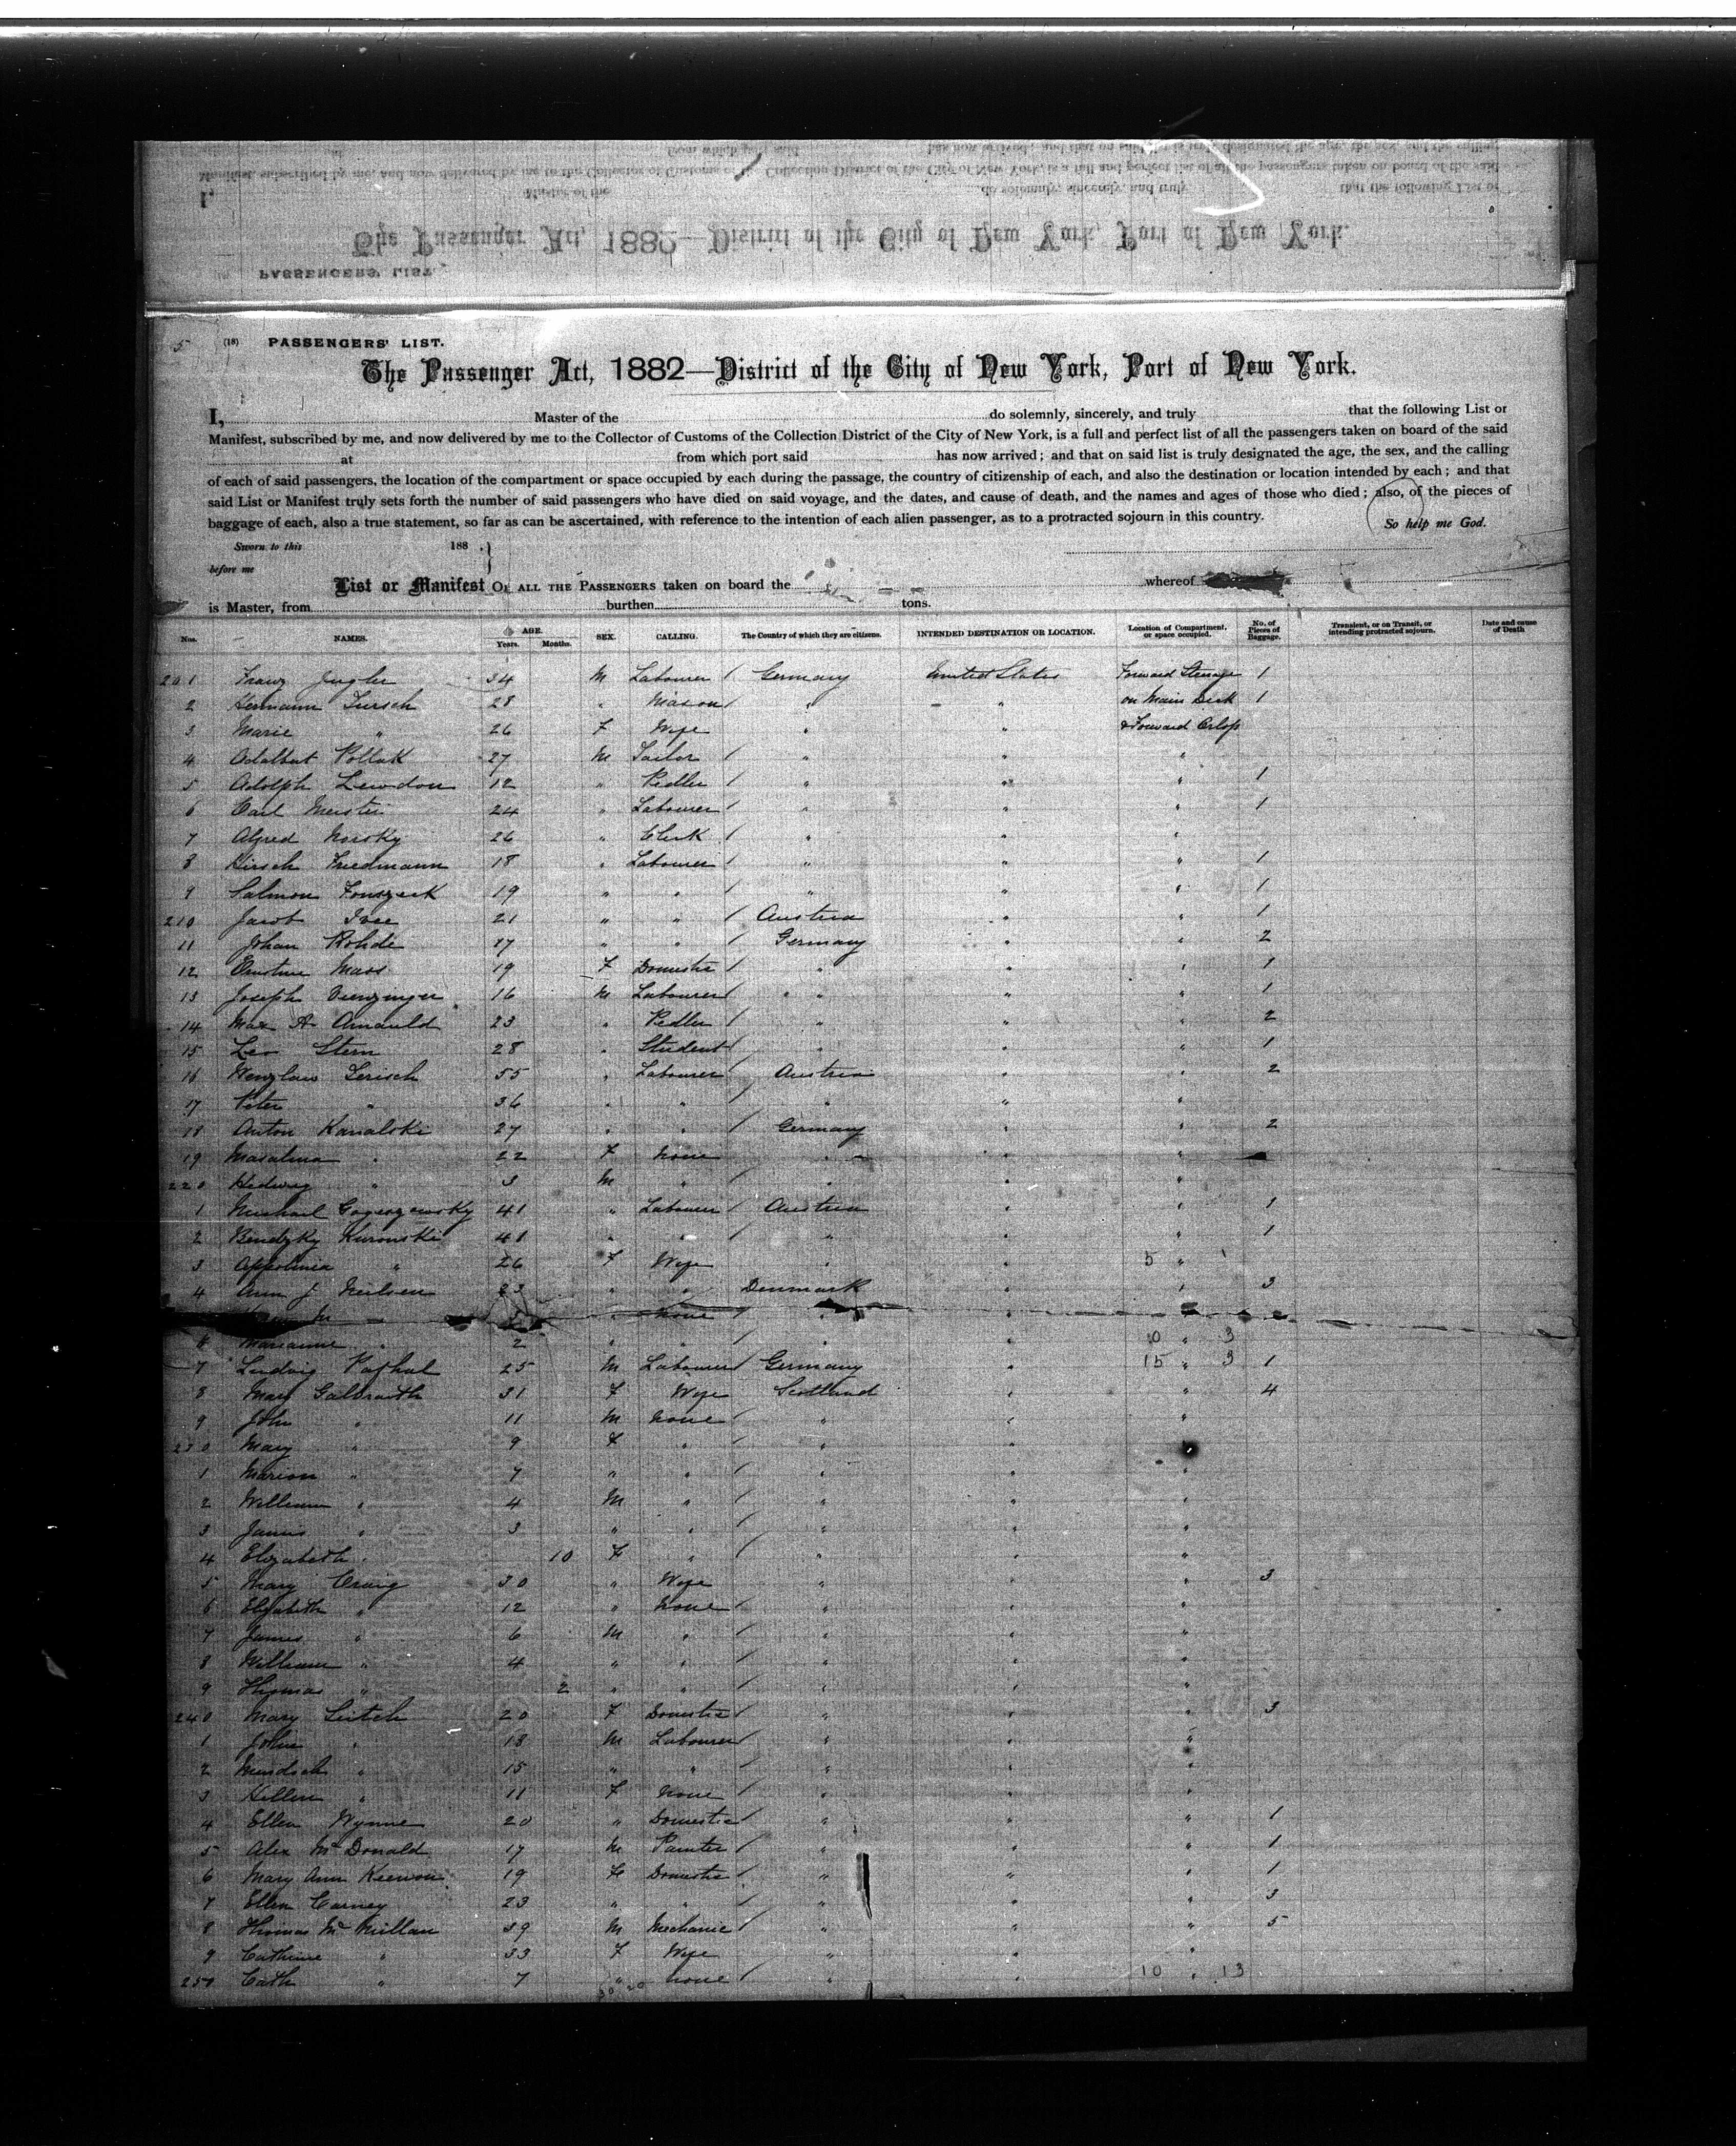 5 (18) PASSENGERS' LIST.
The Passenger Act, 1882—District of the City of New York, Port of New York.
I, Master of the do solemnly, sincerely, and truly that the following List or
Manifest, subscribed by me, and now delivered by me to the Collector of Customs of the Collection District of the City of New York, is a full and perfect list of all the passengers taken on board of the said
at from which port said has now arrived; and that on said list is truly designated the age, the sex, and the calling
of each of said passengers, the location of the compartment or space occupied by each during the passage, the country of citizenship of each, and also the destination or location intended by each; and that
said List or Manifest truly sets forth the number of said passengers who have died on said voyage, and the dates, and cause of death, and the names and ages of those who died; also, of the pieces of
baggage of each, also a true statement, so far as can be ascertained, with reference to the intention of each alien passenger, as to a protracted sojourn in this country. So help me God.
Sworn to this 188 .
before me
List or Manifest OF ALL THE PASSENGERS taken on board the whereof
is Master, from burthen tons.
Nos. NAMES. AGE. Years. Months. SEX. CALLING. The Country of which they are citizens. INTENDED DESTINATION OR LOCATION. Location of Compartment, or space occupied. No. of Pieces of Baggage. Transient, or on Transit, or intending protracted sojourn. Date and cause of Death
201 Franz 34 M Labourer / Germany United States Forward Steerage 1
2 Hermann 28 " Mason / " " on Main Deck 1
3 Marie " 26 F Wife " " & Forward Orlop
4 Adalbert Pollak 27 M Tailor / " " "
5 Adolph 12 " Pedler / " " " 1
6 Carl Meister 24 " Labourer / " " " 1
7 Alfred Norsky 26 " Clerk / " " "
8 Hirsch Friedmann 18 " Labourer / " " " 1
9 Salmon 19 " " / " " " 1
210 Jacob 21 " " / Austria " " 1
11 Johan Rohde 17 " " / Germany " " 2
12 Ernstine Mass 19 F Domestic / " " " 1
13 Joseph 16 M Labourer / " " " 1
14 Max A Arnauld 23 " Pedler / " " " 2
15 Leo Stern 28 " Student / " " " 1
16 Wenzlaw Lerisch 55 " Labourer / Austria " " 2
17 Peter " 36 " " / " " "
18 Anton Kanalski 27 " " / Germany " " 2
19 " 22 F None " " "
220 Hedwig " 3 M " / " " "
1 Michael 41 " Labourer / Austria " " 1
2 Kuronski 41 " " / " " " 1
3 Appolinia " 26 F Wife " " 5 "
4 Ann J Neilsen 23 " " Denmark " " 3
M " None / " "
6 Marianne " 2 " " / " " 10 " 3
7 Ludwig 25 M Labourer / Germany " 15 " 3 1
8 Mary Galbraith 31 F Wife Scotland " " 4
9 John " 11 M None / " " "
230 Mary " 9 F " / " " "
1 Marion " 7 " " / " " "
2 William " 4 M " / " " "
3 James " 3 " " / " " "
4 Elizabeth " 10 F " / " " "
5 Mary Craig 30 " Wife " " " 3
6 Elizabeth " 12 " None / " " "
7 James " 6 M " / " " "
8 William " 4 " " / " " "
9 Thomas " 2 " " / " " "
240 Mary Leitch 20 F Domestic / " " " 3
1 John " 18 M Labourer / " " "
2 " 15 " " / " " "
3 Hellen " 11 F None / " " "
4 Ellen Wynne 20 " Domestic / " " " 1
5 Alex McDonald 17 M Painter / " " " 1
6 Mary Ann Keenon 19 F Domestic / " " " 1
7 Ellen Carney 23 " " / " " " 3
8 Thomas McMillan 39 M Mechanic / " " " 5
9 Catherine " 33 F Wife " " "
250 Cath " 7 " None / " " 10 " 13